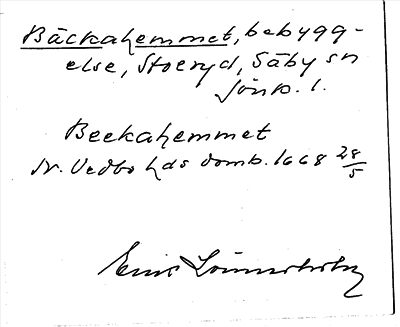 Bäckahemmet, bebygg-
else, Stoeryd, Säby sn
Jönk. l.
Beckahemmet
N. Vedbo hds domb. 1668 28/5